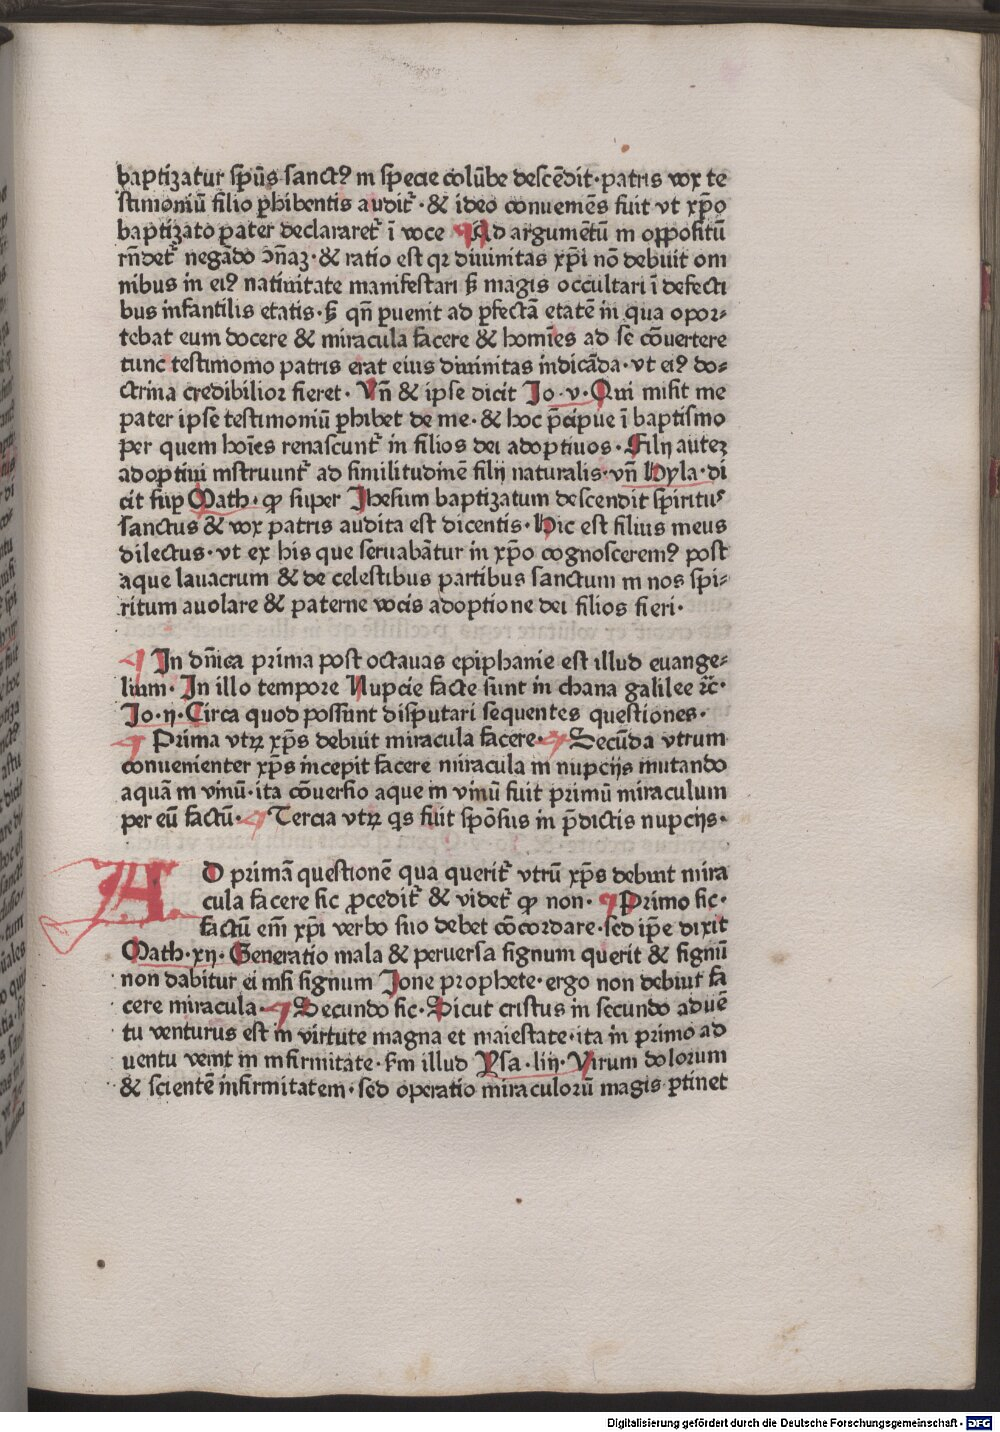 baptizatur sp̄us sanctꝰ in specie colūbe descēdit · patris vox te
stimoniū filio ꝑhibentis auditᷣ · & ideo conueniēs fuit vt xp̄o
baptizato pater declararetᷣ ī voce ¶ Ad argumētū in oppositū
rn̄detᷣ negādo ↄn̄aꝫ · & ratio est qꝛ diuinitas xp̄i nō debuit om
nibus in eiꝰ natiuitate manifestari sꝫ magis occultari ī defecti
bus infantilis etatis · sꝫ qn̄ puenit ad ꝑfectā etatē in qua opor⸗
tebat eum docere & miracula facere & homīes ad se cōuertere
tunc testimonio patris erat eius diuinitas indicāda · vt eiꝰ do⸗
ctrina credibilior fieret · Vn̄ & ipse dicit Jo · v · Qui misit me
pater ipse testimoniū ꝑhibet de me · & hoc p̄cipue ī baptismo
per quem hoīes renascuntᷣ in filios dei adoptiuos · Filij auteꝫ
adoptiui instruuntᷣ ad similitudinē filij naturalis · vn̄ Hyla · di
cit sup Math · ꝙ super Jhesum baptizatum descendit spiritus
sanctus & vox patris audita est dicentis · Hic est filius meus
dilectus · vt ex his que seruabātur in xp̄o cognosceremꝰ post
aque lauacrum & de celestibus partibus sanctum in nos spi⸗
ritum auolare & paterne vocis adoptione dei filios fieri ·
¶ In dn̄ica prima post octauas epiphanie est illud euange⸗
lium · In illo tempore Nupcie facte sunt in chana galilee ⁊c̄ ·
Jo · ij · Circa quod possunt disputari sequentes questiones ·
¶ Prima vtꝝ xp̄s debuit miracula facere · ¶ Secūda vtrum
conuenienter xp̄s incepit facere miracula in nupcijs mutando
aquā in vinū · ita cōuersio aque in vinū fuit primū miraculum
per eū factū · ¶ Tercia vtꝝ q̄s fuit spōsus in p̄dictis nupcijs ·
AD primā questionē qua queritᷣ vtrū xp̄s debuit mira
cula facere sic ꝓceditᷣ & videtᷣ ꝙ non · ¶ Primo sic ·
factū em̄ xp̄i verbo suo debet cōcordare · sed ip̄e dixit
Math · xij · Generatio mala & peruersa signum querit & signū
non dabitur ei nisi signum Jone prophete · ergo non debuit fa
cere miracula · ¶ Secundo sic · Sicut cristus in secundo aduē
tu venturus est in virtute magna et maiestate · ita in primo ad
uentu venit in infirmitate · sm̄ illud Ysa · liij · Virum dolorum
& scientē infirmitatem · sed operatio miraculorū magis ꝑtinet
Digitalisierung gefördert durch die Deutsche Forschungsgemeinschaft · DFG